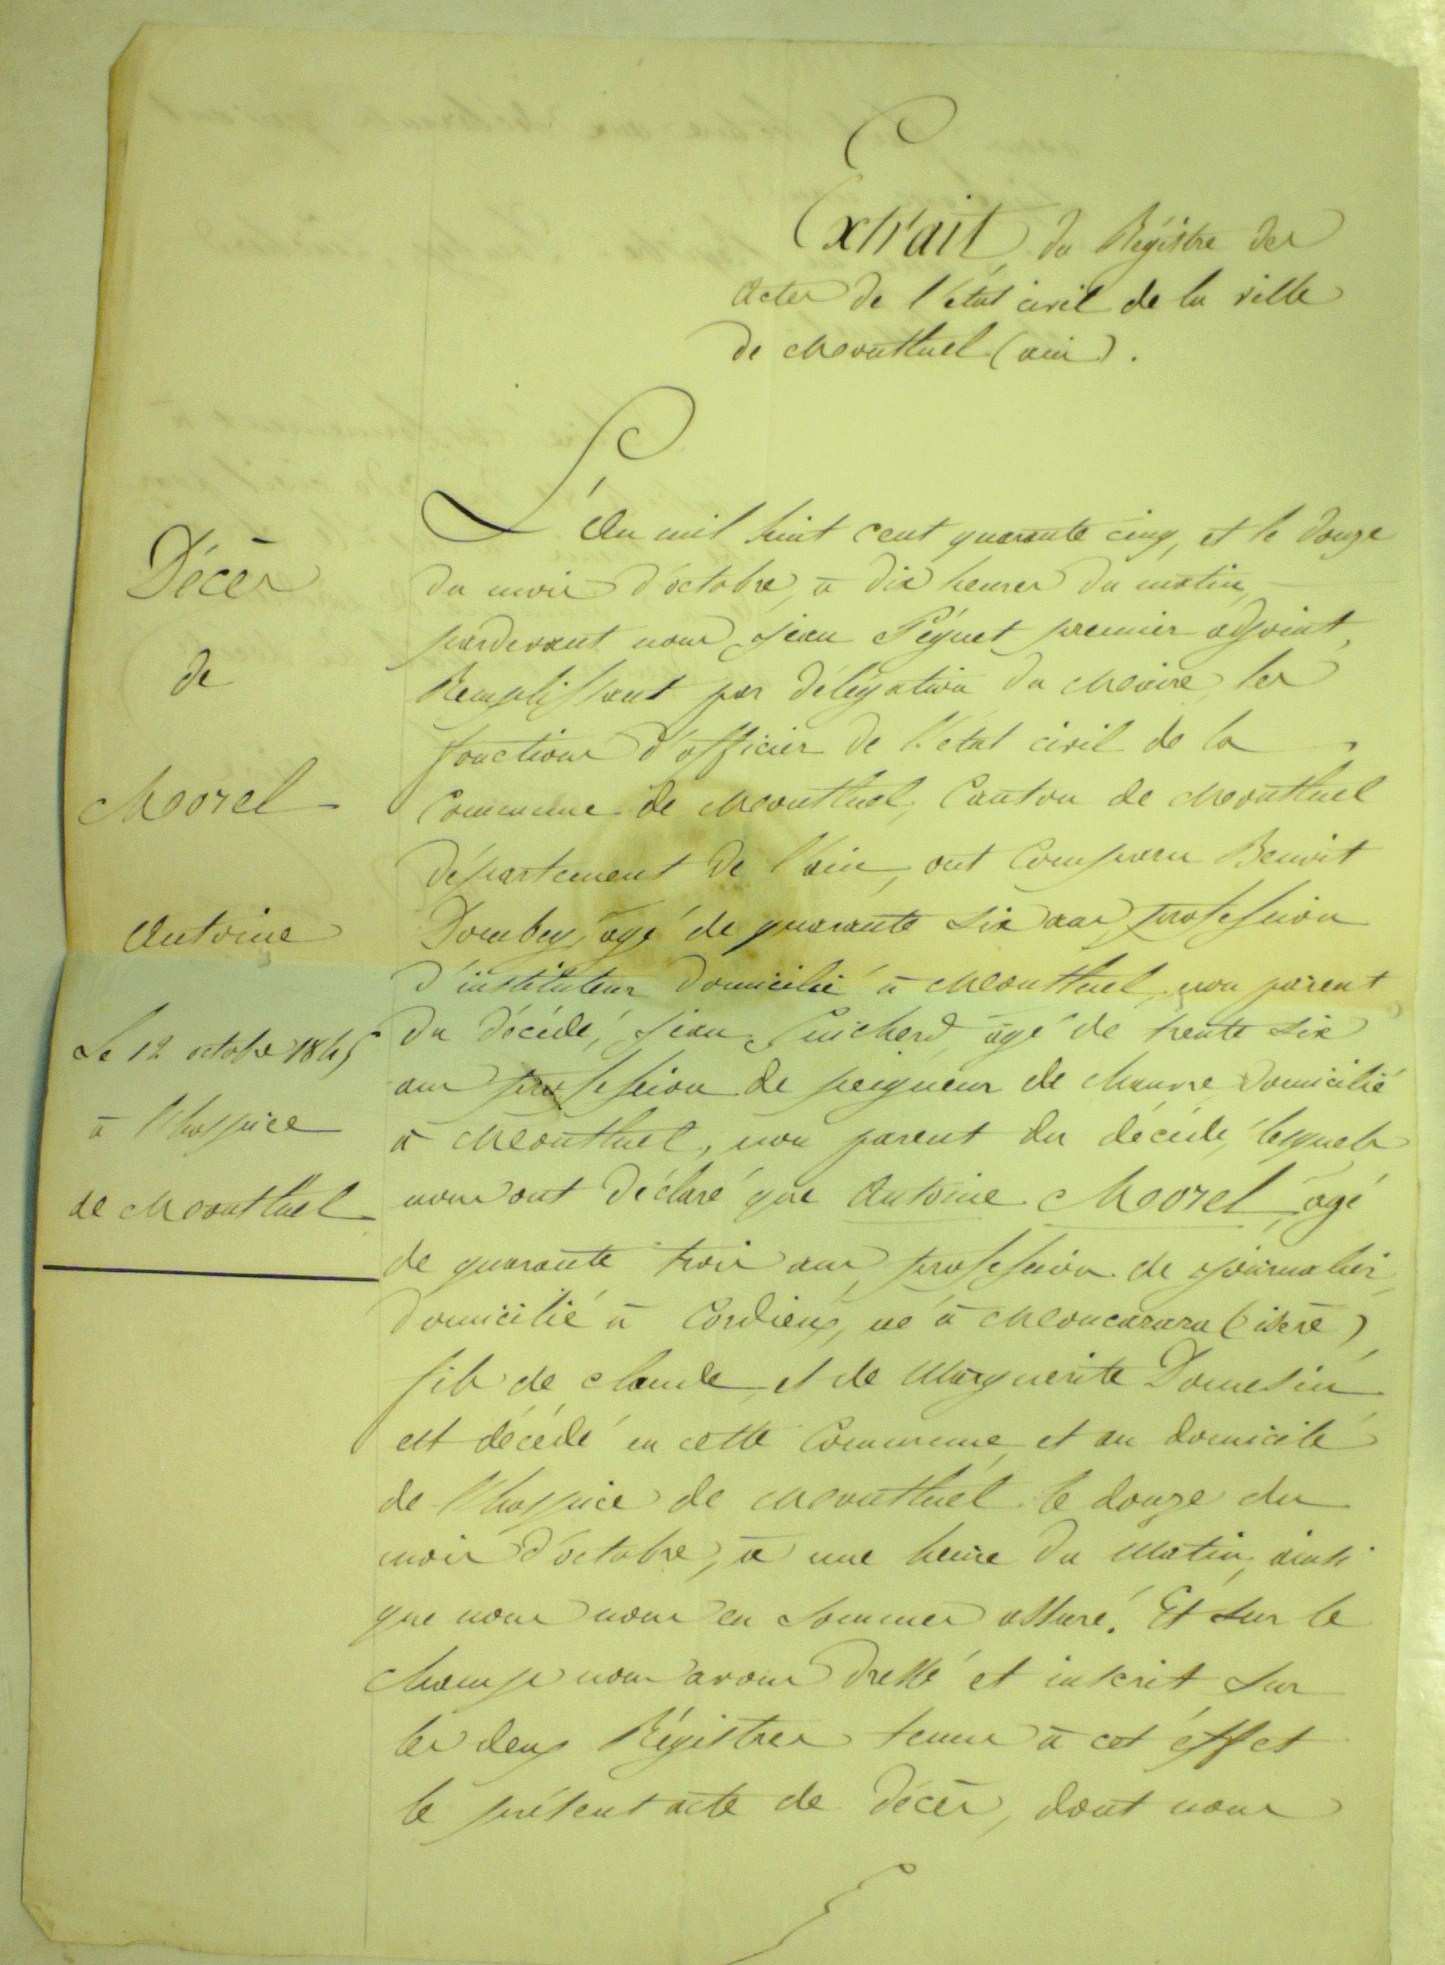 Extrait du Régistre des
actes de l'état civil de la ville
de Montluel (ain).
Décès
de
Morel
Antoine
Le 12 octobre 1845
à l'hospice
de Montluel
L'An mil huit cent quarante cinq, et le douze
du mois d'octobre, à dix heures du matin,
pardevant nous Jean Péguet premier adjoint,
Remplissant par délégation du Maire, les
fonctions d'officier de l'état civil de la
Commune de Montluel, Canton de Montluel
département de l'ain, ont Comparu Benoit
Dombey, agé de quarante six ans, profession
d'instituteur domicilié à Montluel, non parent
du décédé, Jean Guicherd, agé de trente six
ans profession de peigneur de chanvre domicilié
à Montluel, non parent du décédé, lesquels
nous ont déclaré que Antoine Morel, agé
de quarante trois ans, profession de journalier,
domicilié à Cordieux, né à Moncarara (isère),
fils de claude, et de Marguerite Domesin
est décédé en cette Commune, et au domicile
de l'hospice de Montluel le douze du
mois d'octobre, à une heure du matin, ainsi
que nous nous en sommes assuré. Et sur le
champ nous avons dressé et inscrit sur
les deux Régistres tenus à cet éffet
le présent acte de décès, dont nous